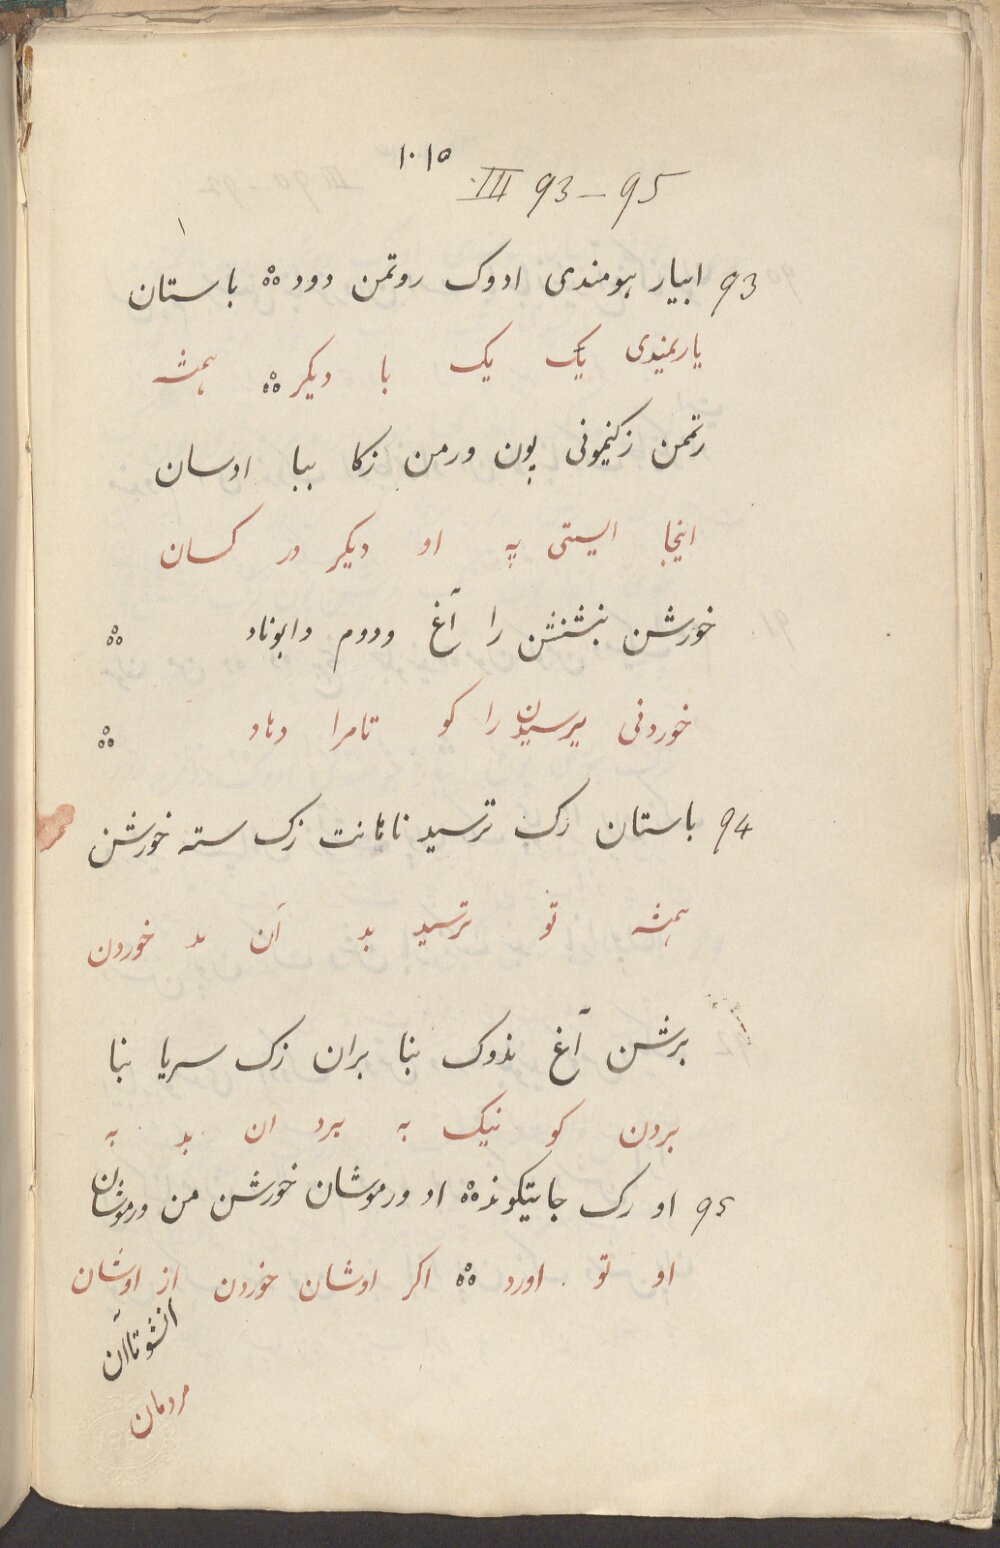 ١٠١٥
III 93-95
93 ابیار ہومندی ادوک روتمن دود ⁘ باستان
یاریمندی یک یک با دیکر ⁘ ہمشه
رتمن زکنیمونی پون ورمن زکا ببا ادسان
اینجا ایستی په او دیکر در کسان
خورشن را آغ ودوم دابوناد ⁘
خوردنی پرسیدن را کو تامرا دهاد ⁘
94 باستان رک ترسید زک سته خورشن
ہمشه تو ترسید بد آن بد خوردن
برشن آغ نذوک بنا بران زک سریا بنا
بردن کو نیک به برد ان بد به
95 او رک جایتکوند ⁘ اد ورموشان خورشن من ورموشان
او تو اورد ⁘ اکر اوشان خوردن از اوشان
انشوتاآن
مردمان